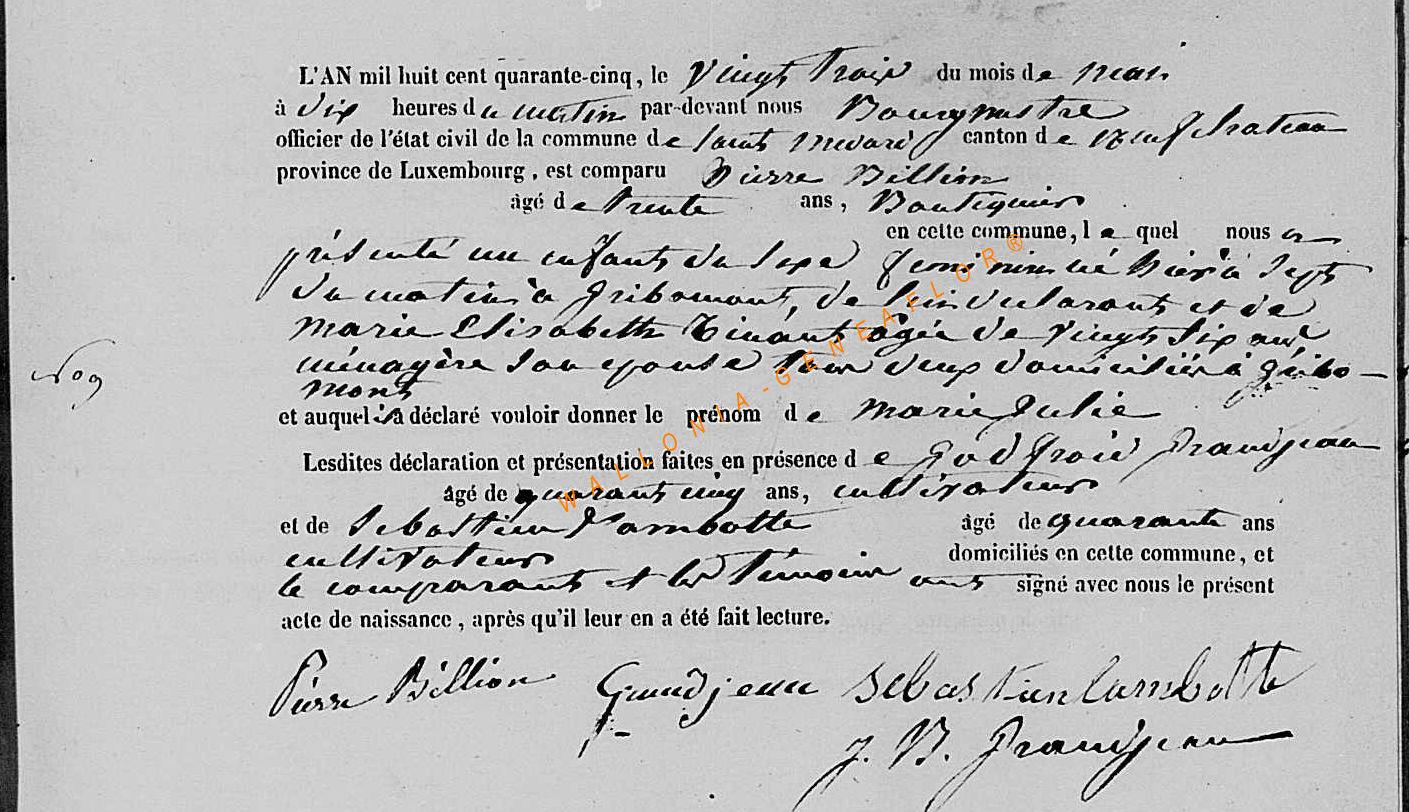 L'AN mil huit cent quarante-cinq, le vingt trois du mois de mai
à dix heures du matin par-devant nous Bourgmestre
officier de l'état civil de la commune de saint medard canton de neufchateau
province de Luxembourg, est comparu Pierre Billion
âgé de trente ans, Boutiquier
en cette commune, le quel nous a
présenté un enfant du sexe feminin né hier à sept
du matin à gribomont, de lui declarant et de
marie Elisabeth Tinant agée de vingt six ans
ménagère son epouse tous deux domiciliés à gribo-
mont
et auquel il a déclaré vouloir donner le prénom de marie julie
Lesdites déclaration et présentation faites en présence de godfroid grandjean
âgé de quarante cinq ans, cultivateur
et de sebastien Lambotte âgé de quarante ans
cultivateur domiciliés en cette commune, et
le comparant et les témoins ont signé avec nous le présent
acte de naissance, après qu'il leur en a été fait lecture.
Pierre Billion Grandjean sebastien lambotte
J. B. grandjean
WALLONIA-GENEAFLOR®